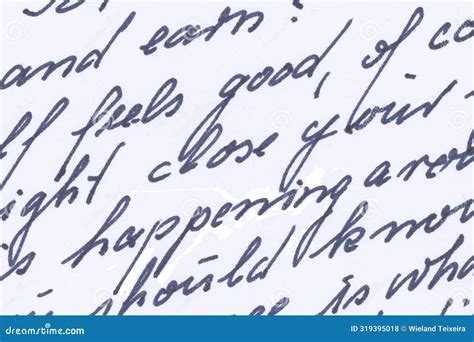 and earn?
feels good, of co
ight close your
s happening arou
should know
is wha
dreamstime.com
ID 319395018 © Wieland Teixeira